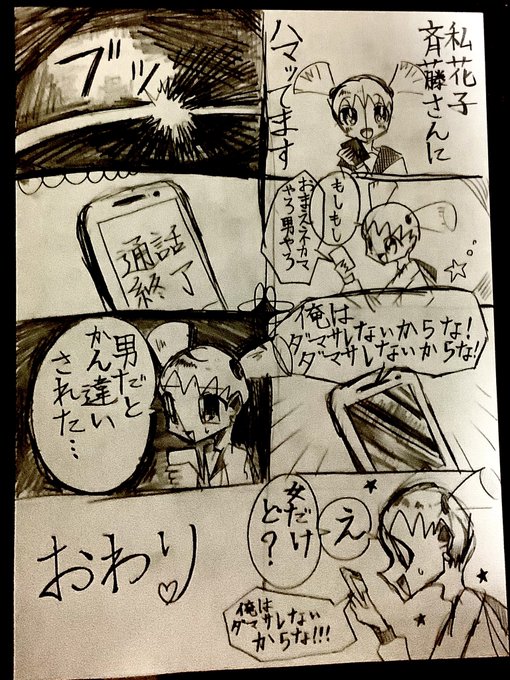 私花子
斉藤さんに
ハマッてます
もしもし
おまえネカマ
やろ男やろ
俺は
ダマサレないからな！
ダマサレないからな！
え
女だけ
ど？
俺は
ダマサレない
からな!!!
ブツッ
通話
終了
男だと
かん違い
された…
おわり♡